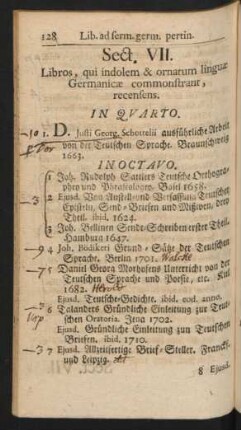 128 Lib. ad serm. germ. pertin.
Sect. VII.
Libros, qui indolem & ornatum linguæ
Germanicæ commonstrant,
recensens.
IN QVARTO.
1. D. Justi Georg. Schottelii ausführliche Arbeit
von der Teutschen Sprache. Braunschweig
1663.
IN OCTAVO.
1 Joh. Rudolph Sattlers Teutsche Orthogra-
phey und Phraseologey. Basel 1658.
2 Ejusd. Von Anstell- und Verfassung Teutschen
Episteln, Send-Briefen und Missiven, drey
Theil. ibid. 1624.
3 Joh. Bellinen Sende-Schreiben erster Theil.
Hamburg 1647.
4 Joh. Bödikers Grund-Sätze der Teutschen
Sprache. Berlin 1701.
5 Daniel Georg Morhofens Unterricht von der
Teutschen Sprache und Poesie, etc. Kiel
1682.
Ejusd. Teutsche-Gedichte. ibid. eod. anno.
6 Talanders Gründliche Einleitung zur Teut-
schen Oratoria. Jena 1702.
Ejusd. Gründliche Einleitung zun Teutschen
Briefen. ibid. 1710.
7 Ejusd. Allzeitfertige Brief-Steller. Franckf.
und Leipzig.
8 Ejusd.